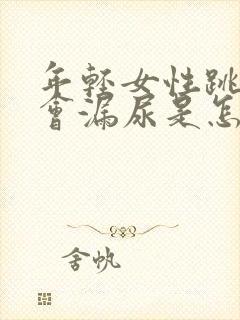 年轻女性跳
會漏尿是怎
舍帆